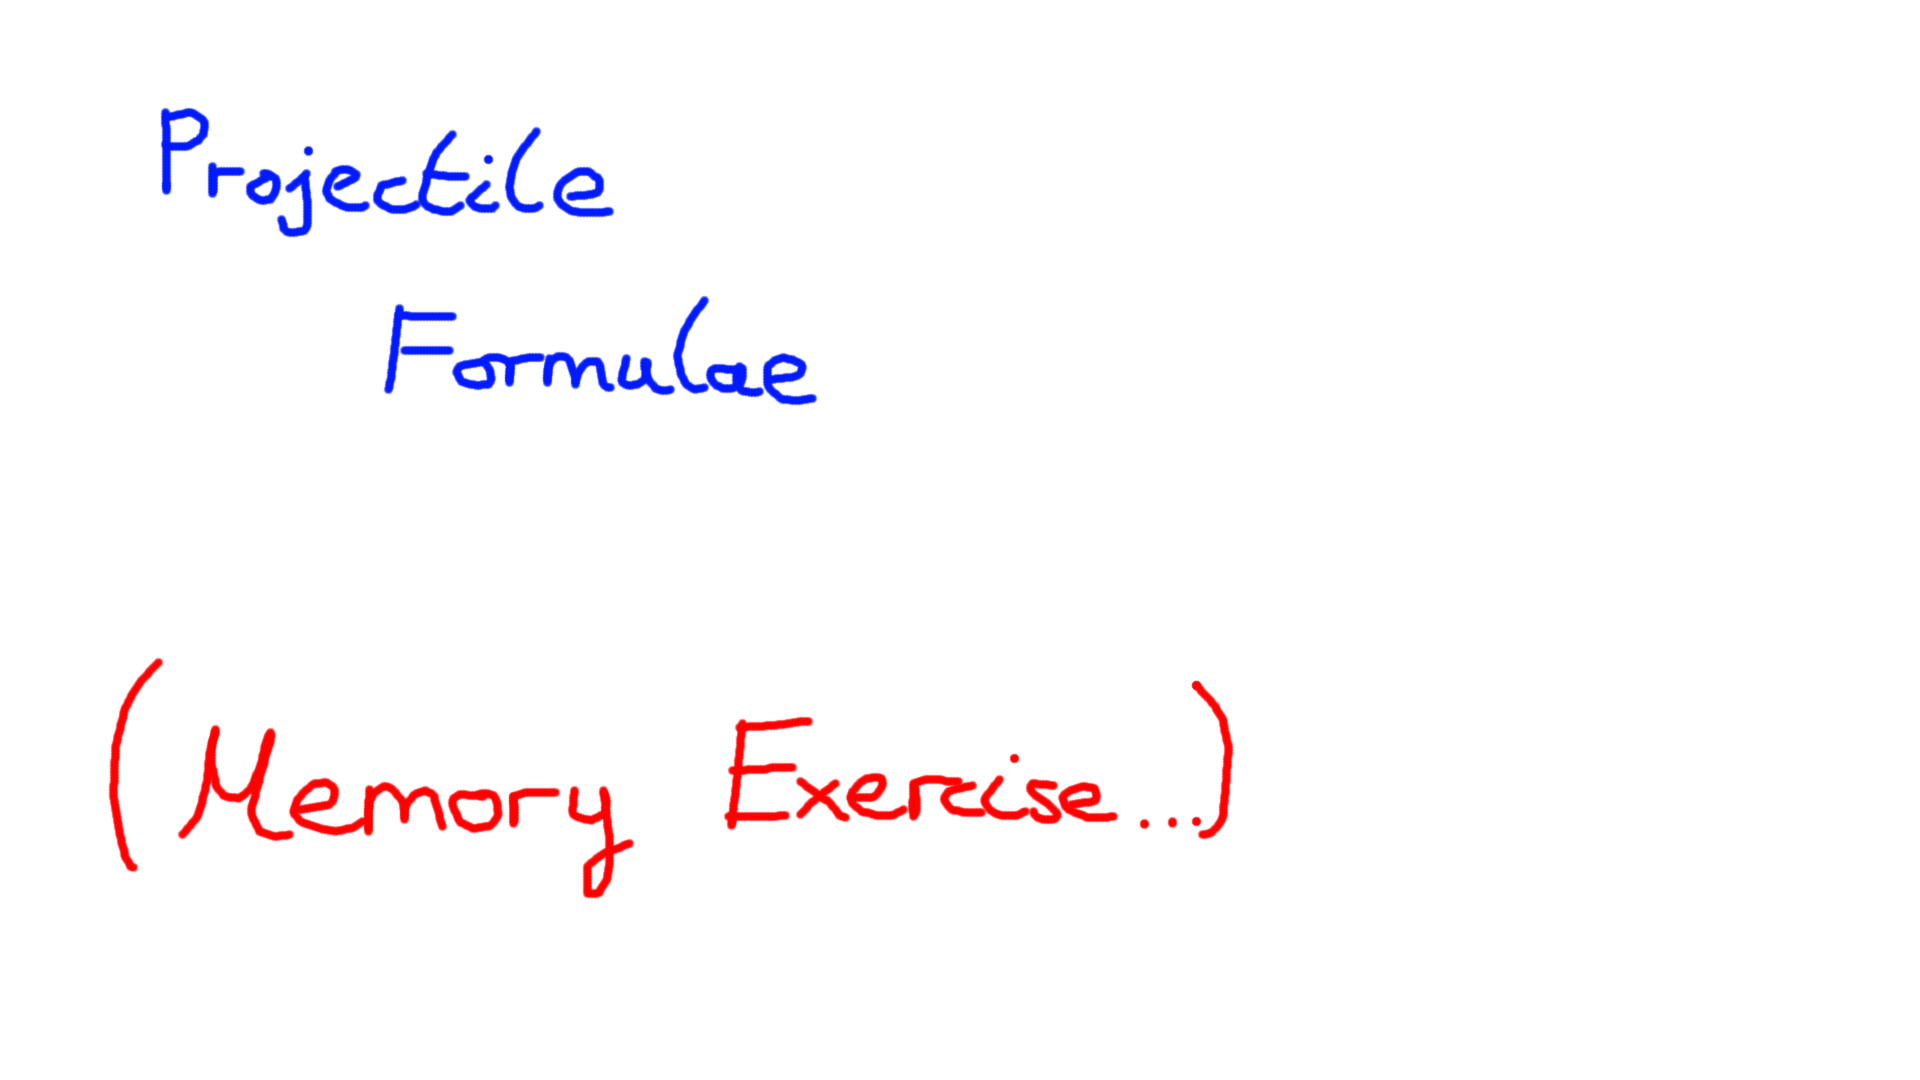 Projectile
Formulae
(Memory Exercise...)